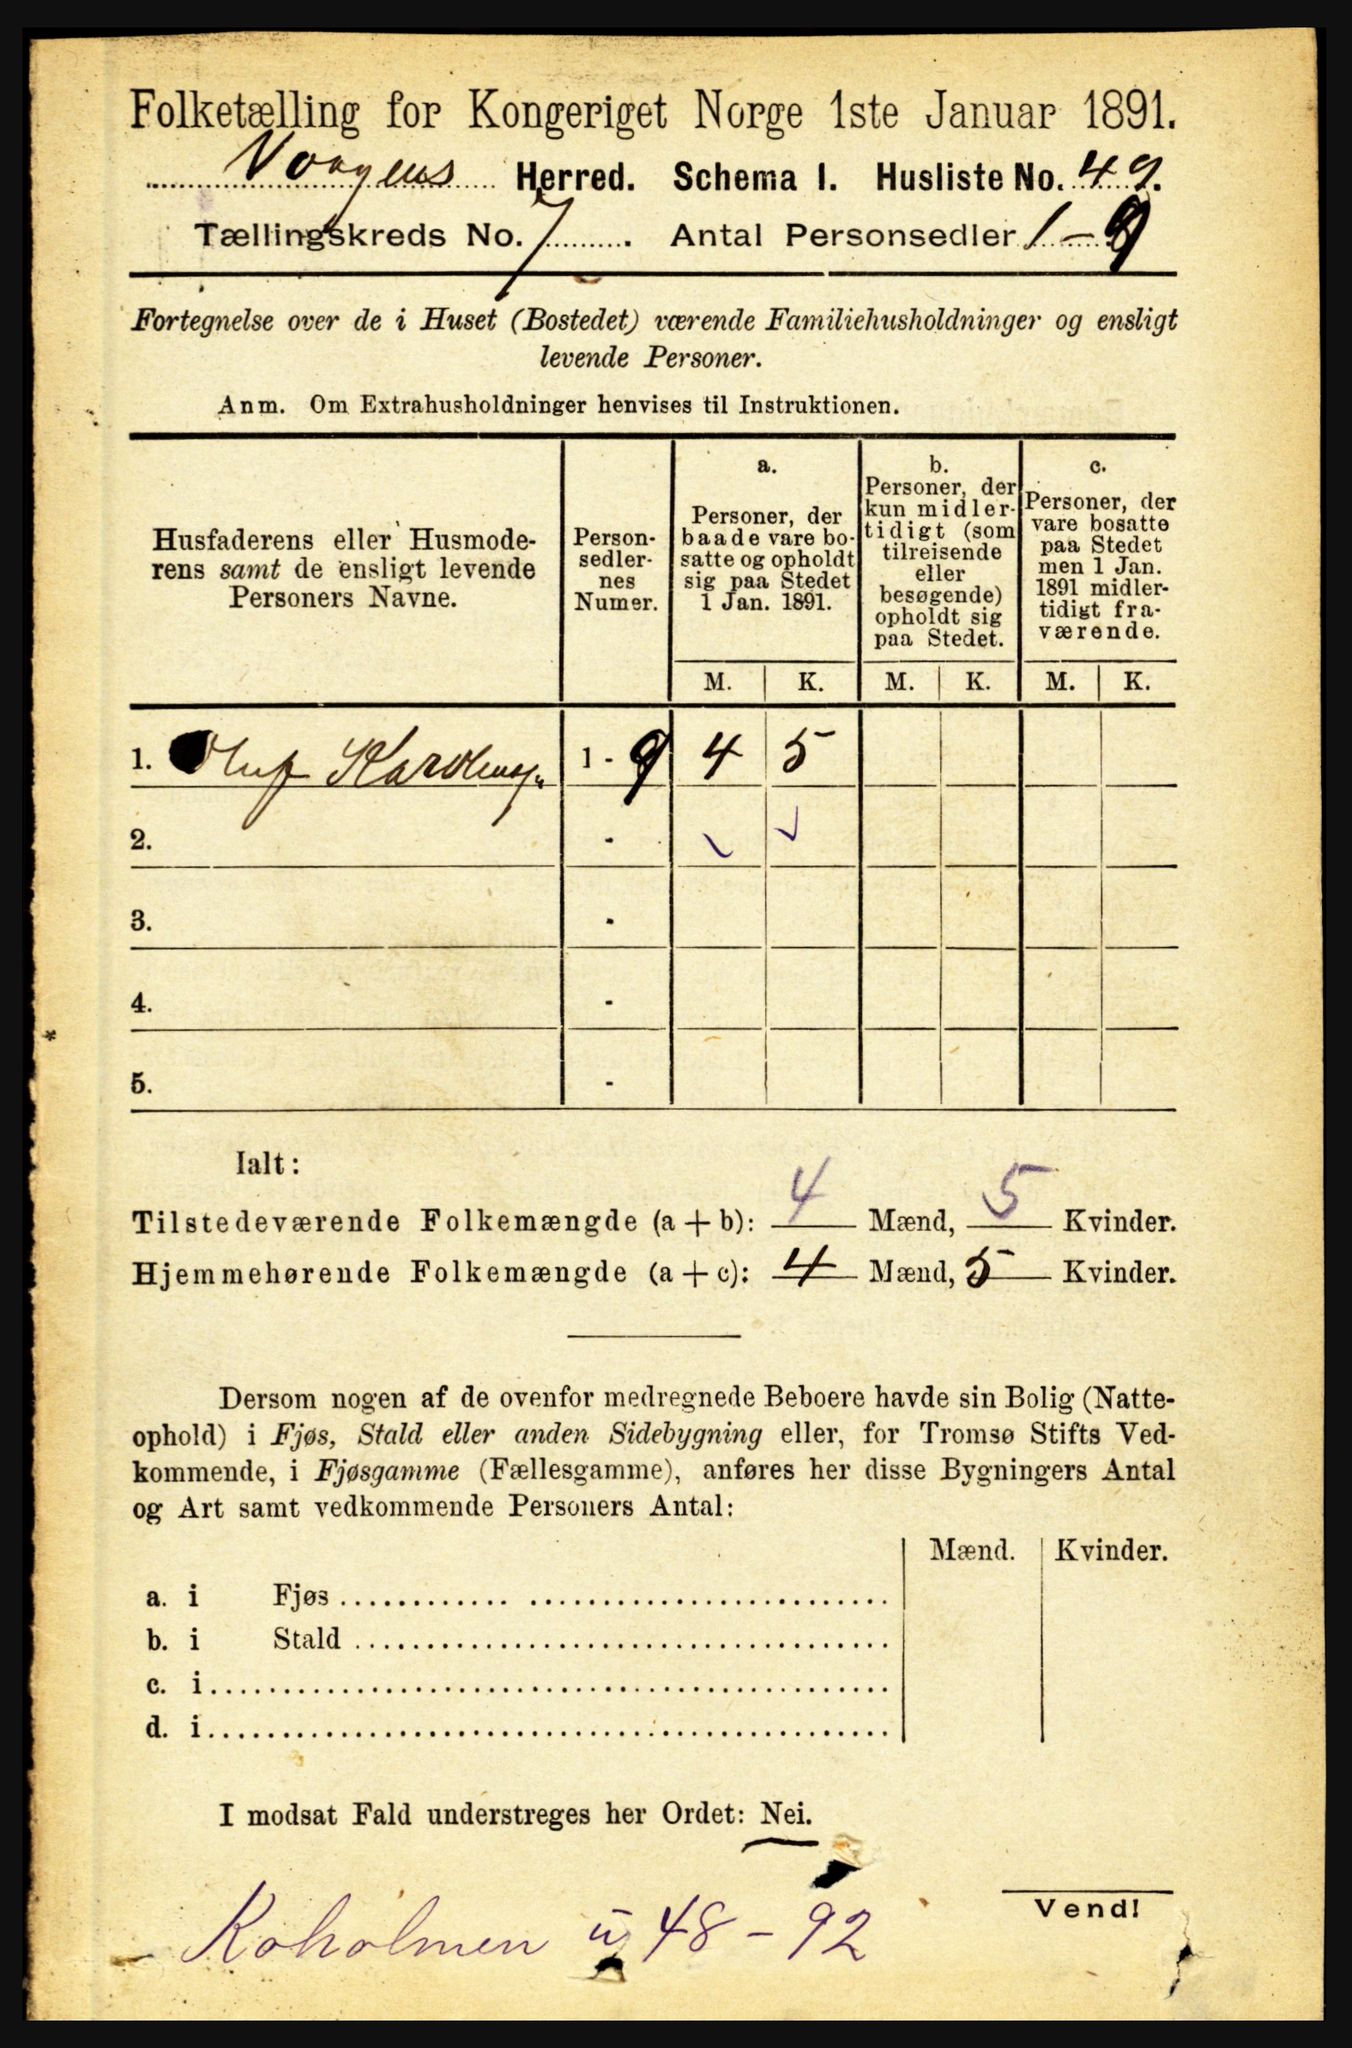 Folketælling for Kongeriget Norge 1ste Januar 1891.
Vaagens Herred. Schema I. Husliste No. 49.
Tællingskreds No. 7. Antal Personsedler 1-9
Fortegnelse over de i Huset (Bostedet) værende Familiehusholdninger og ensligt
levende Personer.
Anm. Om Extrahusholdninger henvises til Instruktionen.
Husfaderens eller Husmode-
rens samt de ensligt levende
Personers Navne.
Person-
sedler-
nes
Numer.
a.
Personer, der
baade vare bo-
satte og opholdt
sig paa Stedet
1 Jan. 1891.
b.
Personer, der
kun midler-
tidigt (som
tilreisende
eller
besøgende)
opholdt sig
paa Stedet.
c.
Personer, der
vare bosatte
paa Stedet
men 1 Jan.
1891 midler-
tidigt fra-
værende.
M. K. M. K. M. K.
1. Oluf 1 - 9 4 5
2. - ✓ ✓
3. -
4. -
5. -
Ialt:
Tilstedeværende Folkemængde (a + b): 4 Mænd, 5 Kvinder.
Hjemmehørende Folkemængde (a + c): 4 Mænd, 5 Kvinder.
Dersom nogen af de ovenfor medregnede Beboere havde sin Bolig (Natte-
ophold) i Fjøs, Stald eller anden Sidebygning eller, for Tromsø Stifts Ved-
kommende, i Fjøsgamme (Fællesgamme), anføres her disse Bygningers Antal
og Art samt vedkommende Personers Antal:
Mænd. Kvinder.
a. i Fjøs
b. i Stald
c. i
d. i
I modsat Fald understreges her Ordet: Nei.
Vend!
Koholmen u 48 - 92